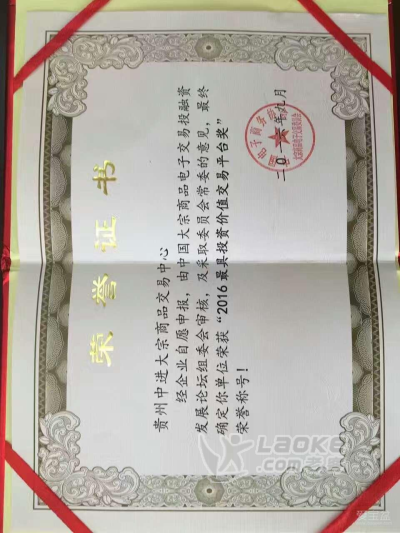 荣誉证书
贵州中进大宗商品交易中心
经企业自愿申报，由中国大宗商品电子交易投融资
发展论坛组委会审核，及采取委员会常委的意见，最终
确定你单位荣获“2016最具投资价值交易平台奖”
荣誉称号！
二〇一六年九月
Laoke
.com